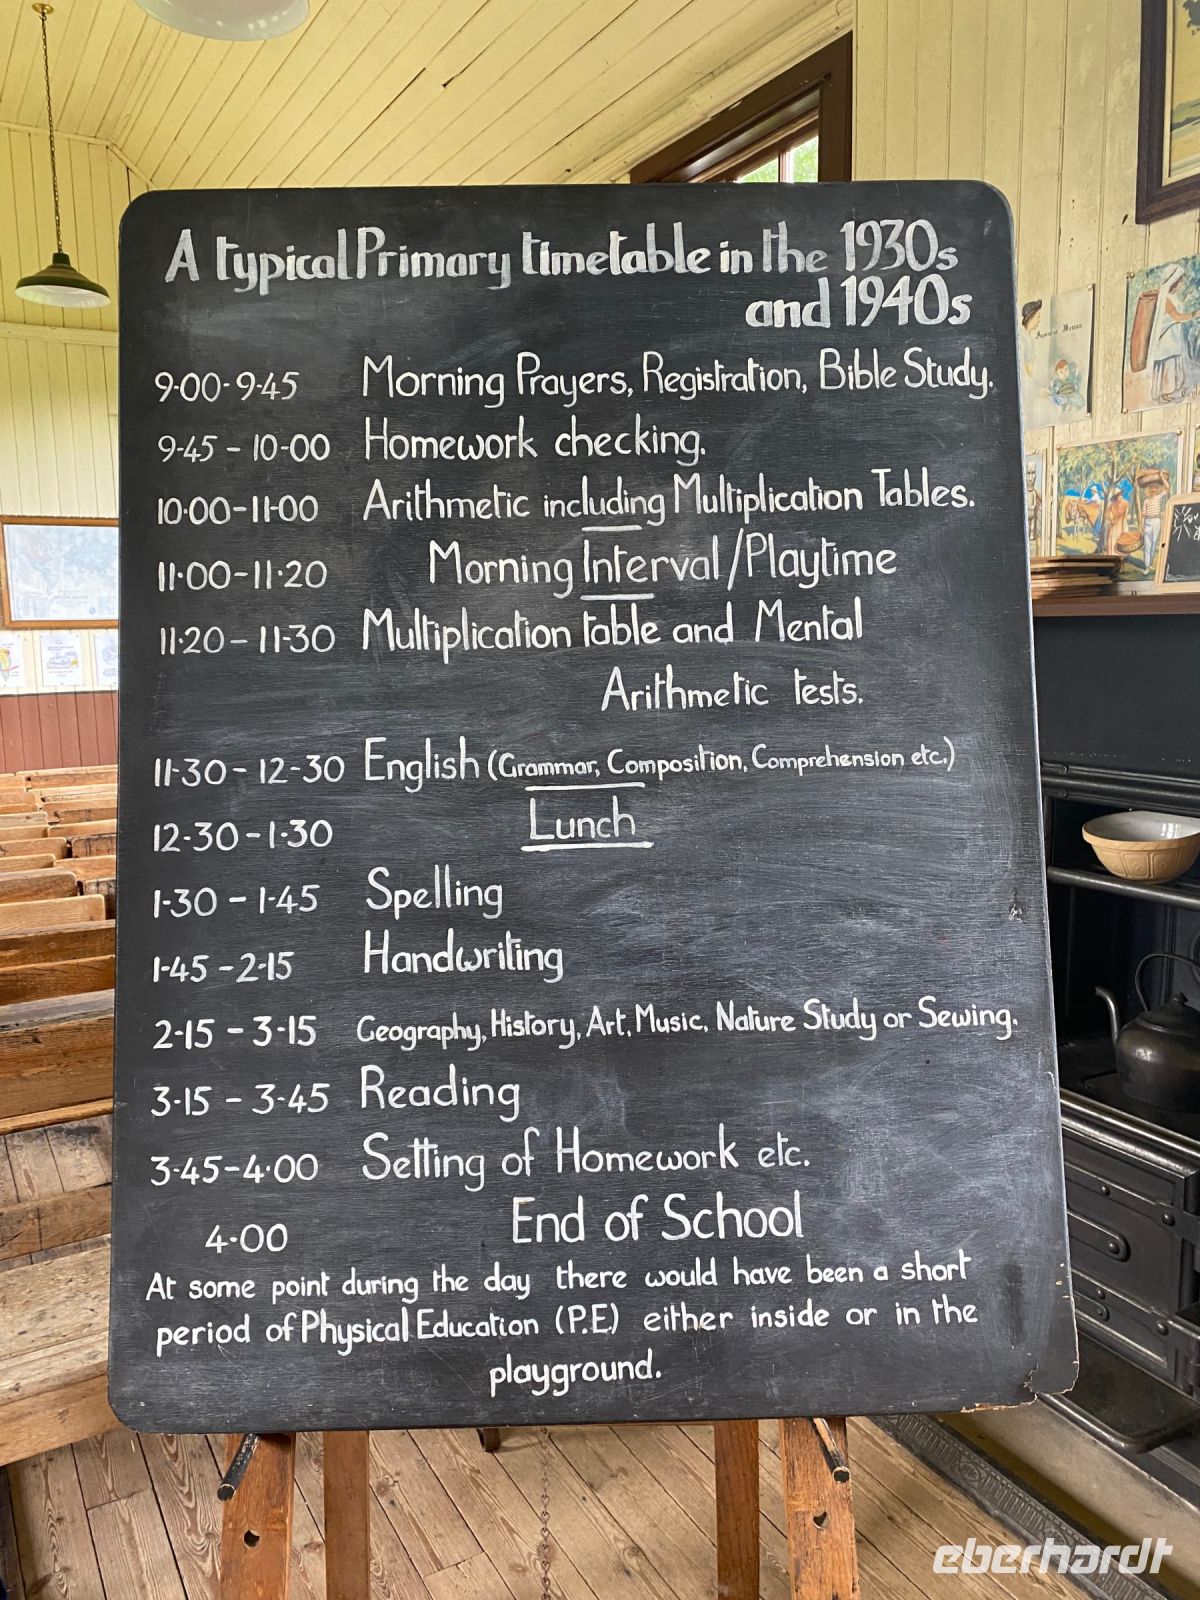 A typical Primary timetable in the 1930s
and 1940s
9·00-9·45 Morning Prayers, Registration, Bible Study.
9·45 - 10·00 Homework checking.
10·00-11·00 Arithmetic including Multiplication Tables.
11·00-11·20 Morning Interval/Playtime
11·20-11·30 Multiplication table and Mental
Arithmetic tests.
11·30-12·30 English (Grammar, Composition, Comprehension etc.)
12·30-1·30 Lunch
1·30 - 1·45 Spelling
1·45 - 2·15 Handwriting
2·15 - 3·15 Geography, History, Art, Music, Nature Study or Sewing.
3·15 - 3·45 Reading
3·45-4·00 Setting of Homework etc.
4·00 End of School
At some point during the day there would have been a short
period of Physical Education (P.E.) either inside or in the
playground.
Woman
eberhardt